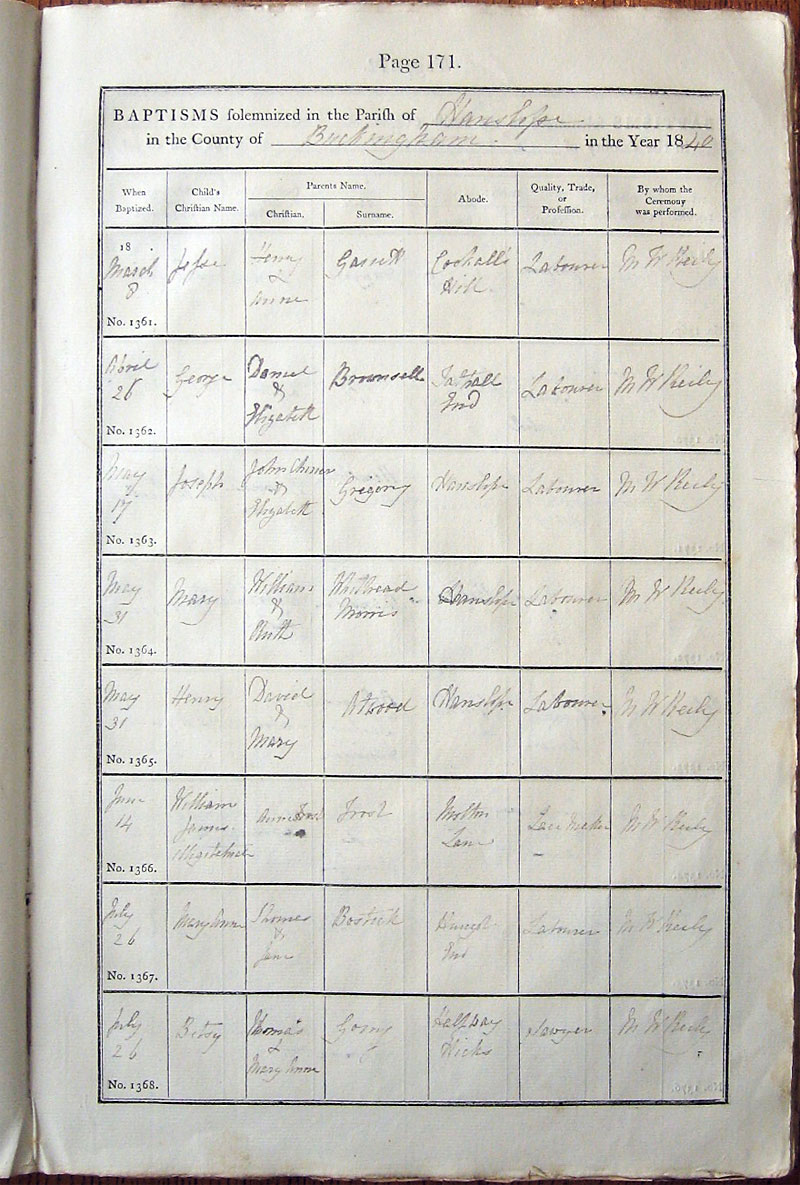 Page 171.
BAPTISMS solemnized in the Parish of Hanslope
in the County of Buckingham in the Year 1840
When Baptized. Child's Christian Name. Parents Name. Abode. Quality, Trade, or Profession. By whom the Ceremony was performed.
Christian. Surname.
18
March Jesse Henry Labourer M W Reily
8 & Hill
Anne
No. 1361.
April George Daniel Brownsell Tathall Labourer M W Reily
26 & End
Elizabeth
No. 1362.
May Joseph John Gregory Hanslope Labourer M W Reily
17 &
Elizabeth
No. 1363.
May Mary William Whitbread Hanslope Labourer M W Reily
31 & Morris
Ruth
No. 1364.
May Henry David Atwood Hanslope Labourer M W Reily
31 &
Mary
No. 1365.
June William Anne Frost Frost Lace Maker M W Reily
14 James Lane
No. 1366.
July Mary Anne Thomas Labourer M W Reily
26 & End
Jane
No. 1367.
July Betsy Thomas Halfway M W Reily
26 &
Mary Anne
No. 1368.